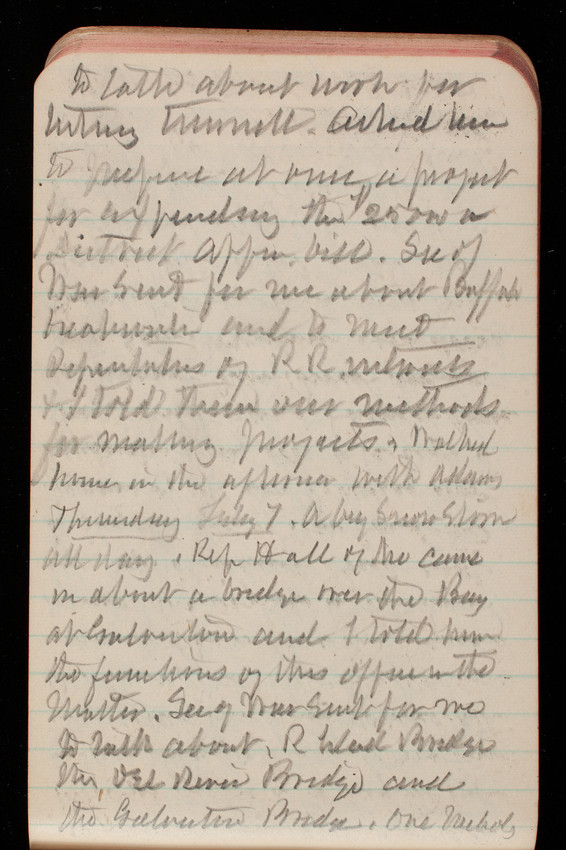 to talk about work for
tunnel. Asked him
to prepare at once a project
for expending the $25000 in
District Appn. bill. Sec of
War sent for me about Buffalo
breakwater and to meet
of R R interests
& I told them our methods
for making projects. Walked
home in the afternoon with Adams
Thursday Feby 7. A big Snow Storm
all day. Rep Hall of Mo came
in about a bridge over the Bay
at Galveston and I told him
the functions of this office in the
matter. Sec of War sent for me
to talk about R Bridge
the Del River Bridge and
the Galveston Bridge. One Nichols